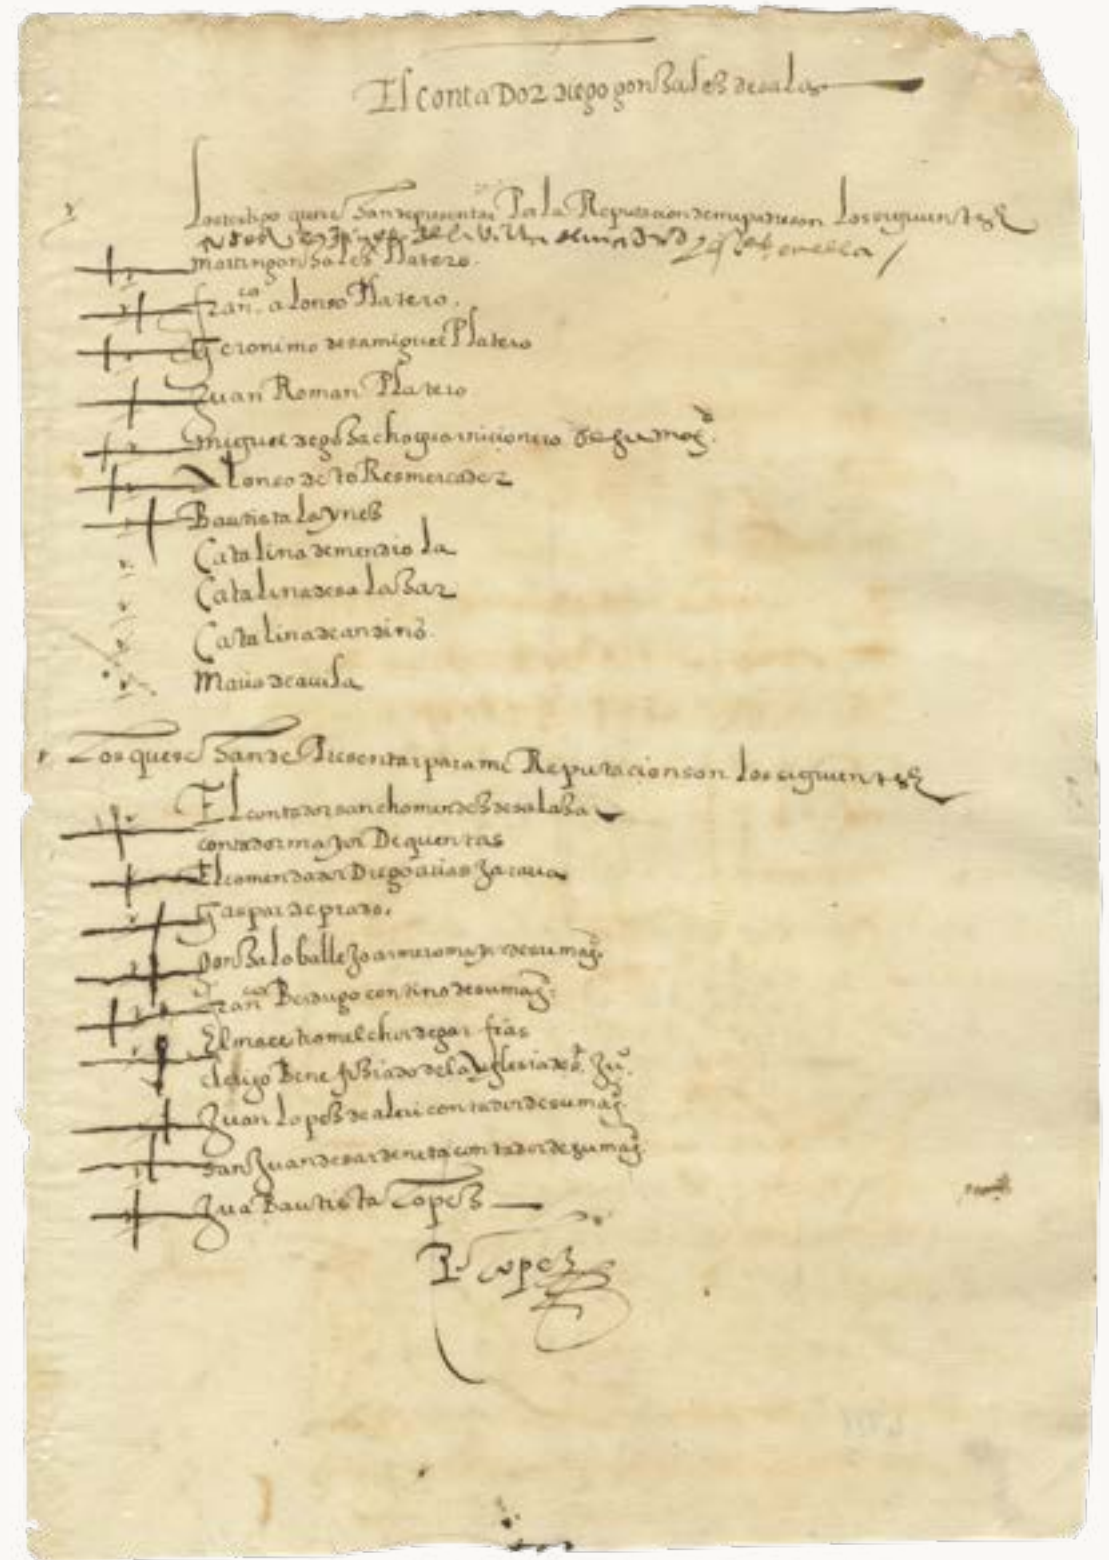 El contador diego gonzales de salas
Los testigos que se han de presentar Pa la Reputacion de mi padre son Los siguientes
de la Villa de madrid
martin gonzales Platero.
fran.co alonso Platero.
Geronimo de samiguel Platero
Juan Roman Platero
miguel de gozacho guarnicionero de su mag.d
Alonso de to Res mercader
Bautista laynez
Catalina de mendiola
Catalina de salazar
Catalina de andino.
Maria de auila
Los que se han de Presentar para mi Reputacion son los siguientes
El contador sancho mendez de salaza
contador mayor De quentas
El comendador Diego arias Jaraua
Gaspar de prado.
gonzalo ballejo armero mayor de su mag.d
Fran.co Berdugo contino de su mag.d
El maestro melchor de
clerigo Benefiziado de la yglesia de s. Ju.o
Juan Lopez de aleri contador de su mag.d
san Juan de sardeneta contador de su mag.d
Jua Bautista Lopez
P. Lopez